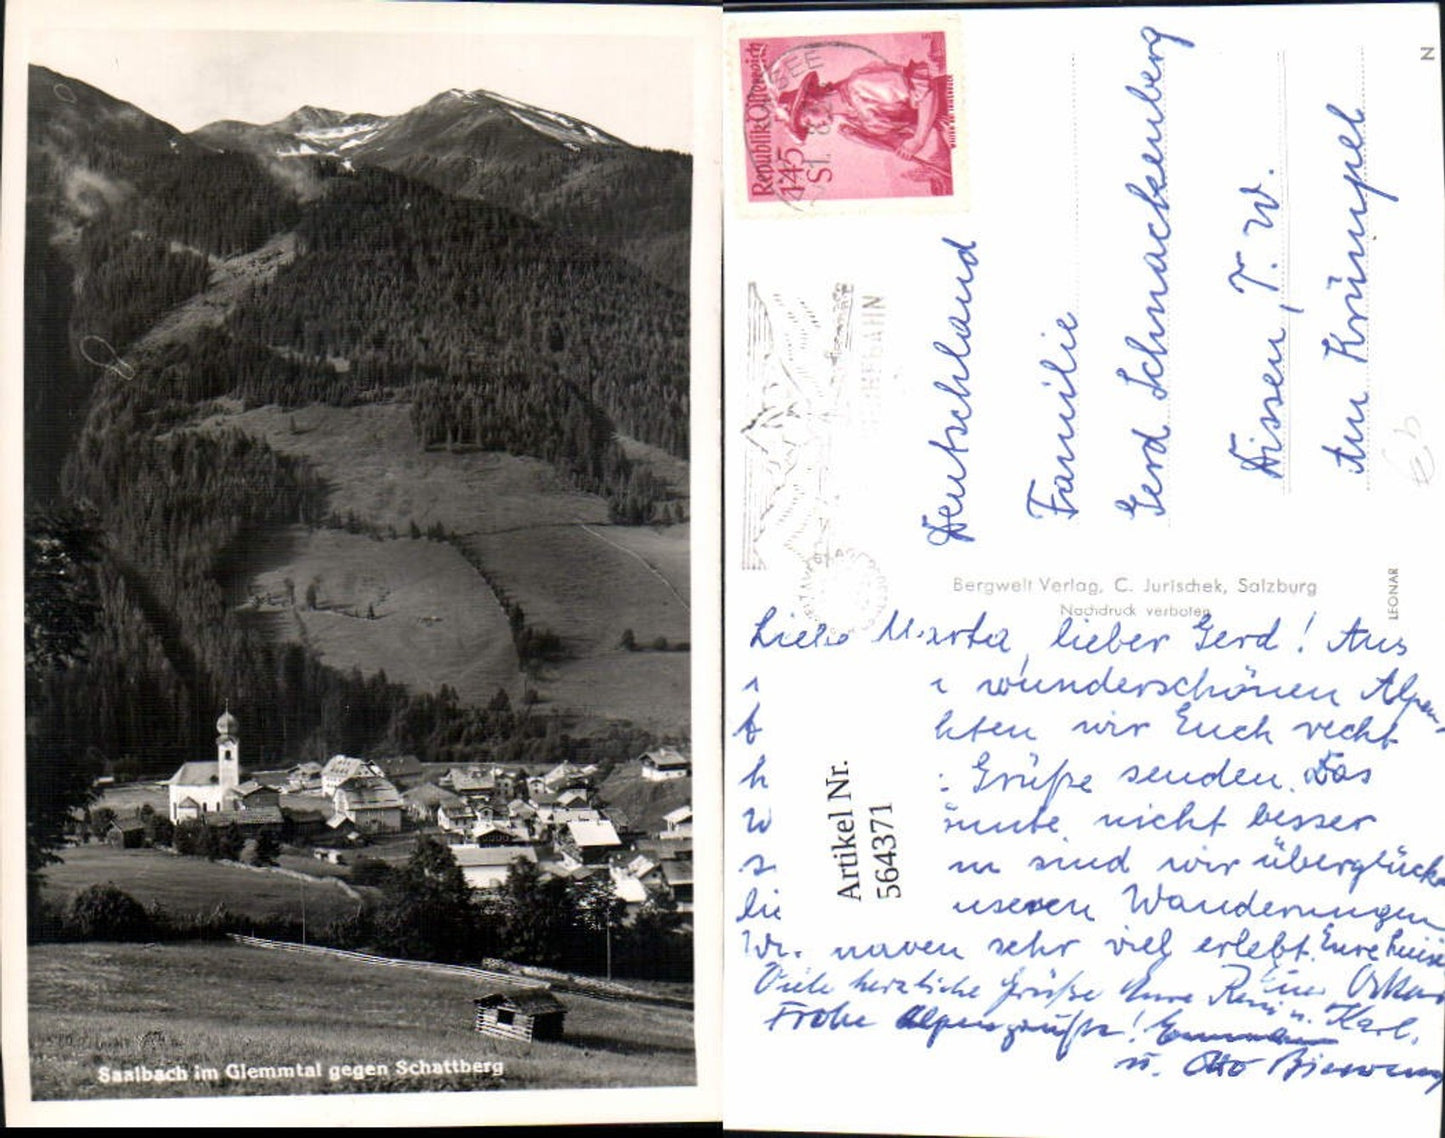 Saalbach im Glemmtal gegen Schattberg
Republik Österreich
1.45
S
SEE
Deutschland
Familie
Gerd Schnackenberg
Dissen, T. W.
Am Krümpel
N
Bergwelt Verlag, C. Jurischek, Salzburg
Nachdruck verboten
LEONAR
Liebe Marta, lieber Gerd! Aus
wunderschönen Alpen-
hten wir Euch recht
h : Grüße senden. Das
W nicht besser
s sind wir überglück
Wanderungen
Wir haben sehr viel erlebt. Eure
Viele herzliche Grüße Eure u. Karl.
Frohe Alpengrüße!
u. Otto
Artikel Nr.
564371